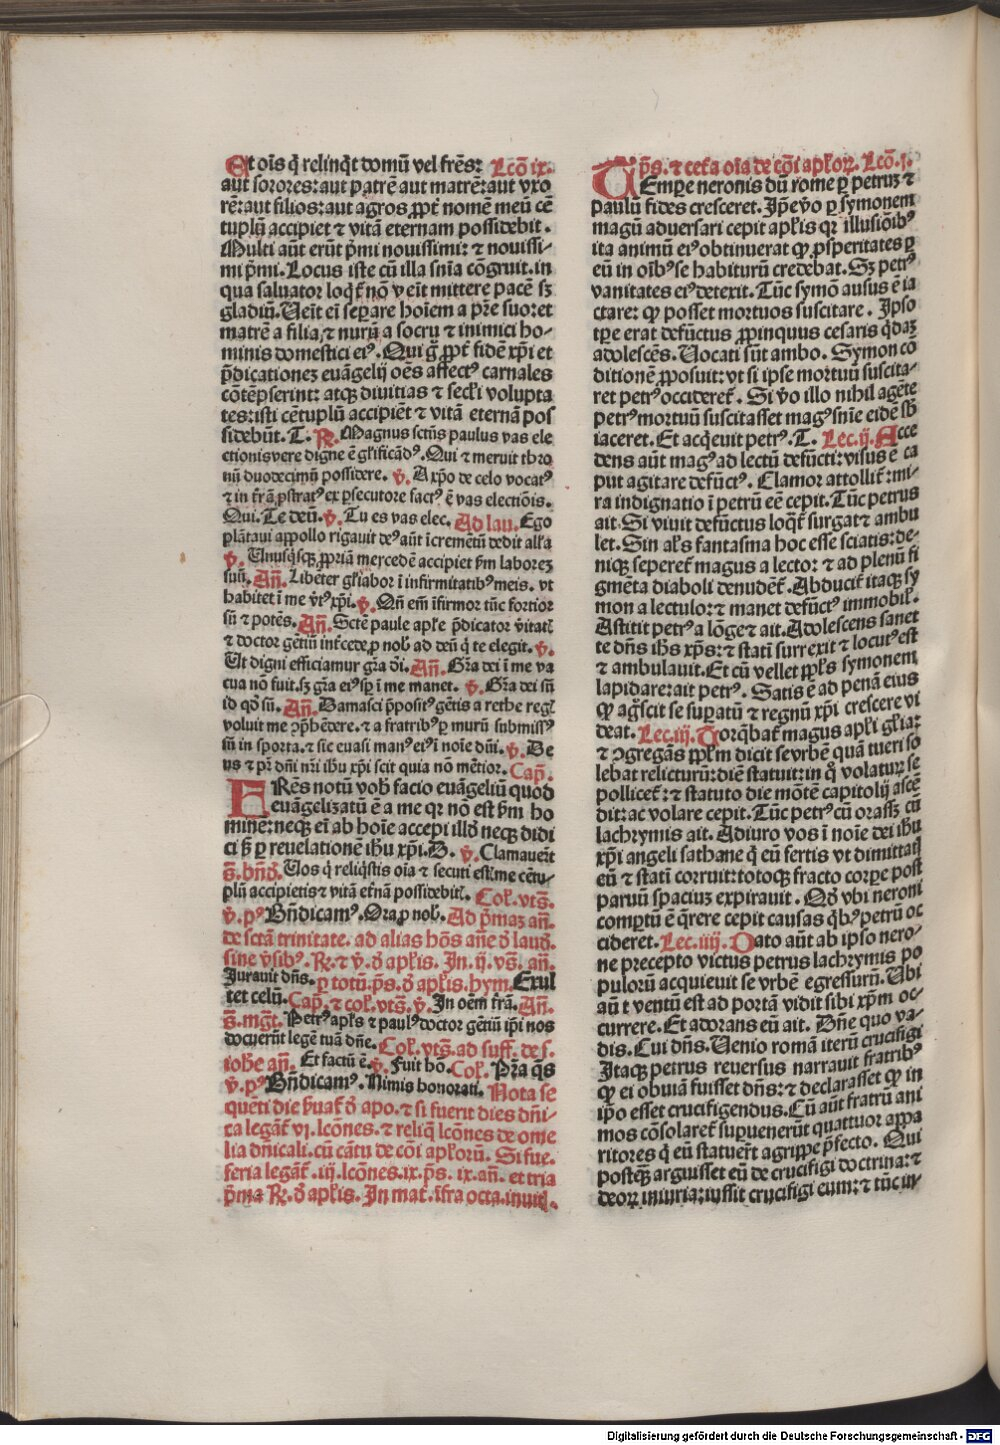 Et oīs q̄ relinq̄t domū vel frēs: Lcō ix.
aut sorores: aut patrē aut matrē: aut vxo
rē: aut filios: aut agros ꝓpt̄ nomē meū cē
tuplū accipiet ⁊ vitā eternam possidebit.
Multi aūt erūt p̄mi nouissimi: ⁊ nouissi-
mi p̄mi. Locus iste cū illa snīa cōgruit. in
qua saluator loq̄t̄ nō veīt mittere pacē sꝫ
gladiū. Ueīt eī seꝑare hoīem a pr̄e suo: et
matrē a filia, ⁊ nurū a socru ⁊ inimici ho-
minis domestici eiꝰ. Qui g̊ ꝓpt̄ fidē xp̄i et
p̄dicationeꝫ euāgelij oēs affectꝰ carnales
cōtēpserint: atqꝫ diuitias ⁊ secl̄i volupta
tes: isti cētuplū accipiēt ⁊ vitā eternā pos
sidebūt. T. ℞. Magnus sctūs paulus vas ele
ctionis vere digne ē gl̄ificādꝰ. Qui ⁊ meruit thro
nū duodecimū possidere. v̄. A xp̄o de celo vocatꝰ
⁊ in t̄rā ꝓstratꝰ ex ꝑsecutore factꝰ ē vas electiōis.
Qui. Te deū. v̄. Tu es vas elec. Ad lau. Ego
plātaui appollo rigauit deꝰ aūt īcremētū dedit all̄a
v̄. Unusq̄sqꝫ ꝓpriā mercedē accipiet s̄m laboreꝫ
suū. Añ. Libēter gl̄iabor ī infirmitatibꝰ meis. vt
habitet ī me v̄tꝰ xp̄i. v̄. Qn̄ em̄ īfirmor tūc fortior
sū ⁊ potēs. Añ. Sctē paule apl̄e p̄dicator v̄itatꝭ
⁊ doctor gētiū int̄cede ꝓ nob̄ ad deū q̄ te elegit. v̄.
Ut digni efficiamur gr̄a d̄i. Añ. Gr̄a dei ī me va
cua nō fuit. sꝫ gr̄a eiꝰ sꝑ ī me manet. v̄. Gr̄a dei sū
id qd̄ sū. Añ. Damasci p̄positꝰ gētis arethe regꝭ
voluit me ꝯp̄hēdere. ⁊ a fratribꝰ ꝑ murū submissꝰ
sū in sporta. ⁊ sic euasi manꝰ eiꝰ ī noīe dn̄i. v̄. De
us ⁊ pr̄ dn̄i nr̄i ih̄u xp̄i scit quia nō mētior. Cap̄.
FRēs notū vob̄ facio euāgeliū quod
euāgelizatū ē a me qr nō est s̄m ho
minē: neqꝫ eī ab hoīe accepi illd̄ neqꝫ didi
ci ꝫ ꝑ reuelationē ih̄u xp̄i. D. v̄. Clamauer̄t
S̄. bn̄d̄. Uos q̄ reliq̄stis oīa ⁊ secuti estꝭ me cētu-
plū accipietis ⁊ vitā et̄nā possidebitꝭ. Col̄. vts̄.
v̄. pꝰ Bn̄dicamꝰ. Ora ꝓ nob̄. Ad p̄maꝫ añ.
de sctā trinitate. ad alias hōs añe d̄ laud̄.
sine v̄sibꝰ. ℞. ⁊ v̄. d̄ apl̄is. In. ij. vs̄. añ.
Jurauit dn̄s. ꝑ totū. p̄s. d̄ apl̄is. hym. Exul
tet celū. Cap̄. ⁊ col̄. vts̄. v̄. In oēm t̄rā. Añ.
S̄. mg̅t̄. Petrꝰ apl̄s ⁊ paulꝰ doctor gētiū ip̄i nos
docuer̄t legē tuā dn̄e. Col̄. vts̄. ad suff. de s.
iohē añ. Et factū ē. v̄. Fuit hō. Col̄. Pr̄a q̄s
v̄. pꝰ Bn̄dicamꝰ. Nimis honorati. Nota se
quēti die ƀuat̄ d̄ apo. ⁊ si fuerit dies dn̄i-
ca legāt̄ vj. lcōnes. ⁊ reliq̄ lcōnes de ome
lia dn̄icali. cū cātu de cōi apl̄orū. Si fue.
feria legāt̄. iij. lcōnes. ix. p̄s. ix. añ. et tria
p̄ma ℞. d̄ apl̄is. In mat̄. īfra octa. inuit̄.
p̄s. ⁊ cet̄a oīa de cōi apl̄oꝝ. Lcō. j.
TEmꝑe neronis dū rome ꝑ petruꝫ ⁊
paulū fides cresceret. Ip̄e v̄o ꝑ symonem
magū aduersari cepit apl̄is qr illusiōibꝰ
ita animū eiꝰ obtinuerat ꝙ ꝓsperitates ꝑ
eū in oībꝰ se habiturū credebat. Sꝫ petrꝰ
vanitates eiꝰ detexit. Tūc symō ausus ē ia
ctare: ꝙ posset mortuos suscitare. Ipso
tꝑe erat defūctus ꝓpinquus cesaris q̄daꝫ
adolescēs. Uocati sūt ambo. Symon cō
ditionē ꝓposuit: vt si ipse mortuū suscita-
ret petrꝰ occideret̄. Si v̄o illo nihil agēte
petrꝰ mortuū suscitasset magꝰ snīe eidē sb̄
iaceret. Et acq̄euit petrꝰ. T. Lec. ij. Acce
dens aūt magꝰ ad lectū defūcti: visus ē ca
put agitare defūctꝰ. Clamor attollit̄: mi-
ra indignatio ī petrū eē cepit. Tūc petrus
ait. Si viuit defūctus loq̄t̄ surgat ⁊ ambu
let. Sin al̄s fantasma hoc esse sciatis: de-
niqꝫ seperet̄ magus a lecto: ⁊ ad plenū fi
gmēta diaboli denudēt̄. Abducit̄ itaqꝫ sy
mon a lectulo: ⁊ manet defūctꝰ immobil̄.
Astitit petrꝰ a lōge ⁊ ait. Adolescens sanet
te dn̄s ih̄s xp̄s: ⁊ statī surrexit ⁊ locutꝰ est
⁊ ambulauit. Et cū vellet ppl̄s symonem
lapidare: ait petrꝰ. Satis ē ad penā eius
ꝙ ag̊scit se suꝑatū ⁊ regnū xp̄i crescere vi
deat. Lec. iij. Torq̄bat̄ magus apl̄i gl̄ia:
⁊ ꝯgregās ppl̄m dicit se vrbē quā tueri so
lebat relicturū: diē statuit: in q̊ volaturꝫ se
pollicet̄: ⁊ statuto die mōtē capitolij ascē
dit: ac volare cepit. Tūc petrꝰ cū orassꝫ cū
lachrymis ait. Adiuro vos ī noīe dei ih̄u
xp̄i angeli sathane q̄ eū fertis vt dimittatꝭ
eū ⁊ statī corruit: totoqꝫ fracto corꝑe post
paruū spaciuꝫ expirauit. Qd̄ vbi neroni
comꝑtū ē q̄rere cepit causas q̄bꝰ petrū oc
cideret. Lec. iiij. Dato aūt ab ipso nero-
ne precepto victus petrus lachrymis po
pulorū acquieuit se vrbē egressurū. Ubi
aūt ventū est ad portā vidit sibi xp̄m oc-
currere. Et adorans eū ait. Dn̄e quo va-
dis. Cui dn̄s. Uenio romā iterū crucifigi
Itaqꝫ petrus reuersus narrauit fratribꝰ
ꝙ ei obuiā fuisset dn̄s: ⁊ declarasset ꝙ in
ip̄o esset crucifigendus. Cū aūt fratrū ani
mos cōsolaret̄ suꝑuenerūt quattuor appa
ritores q̄ eū statuer̄t agrippe p̄fecto. Qui
postqꝫ arguisset eū de crucifigi doctrina: ⁊
deoꝝ iniuria: iussit crucifigi eum: ⁊ tūc in-
Digitalisierung gefördert durch die Deutsche Forschungsgemeinschaft - DFG